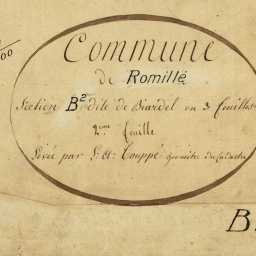 00
Commune
de Romillé
Section B² dite de Biardel en 3 feuilles
2ème feuille
Levée par Couppé géomètre du Cadastre
B.